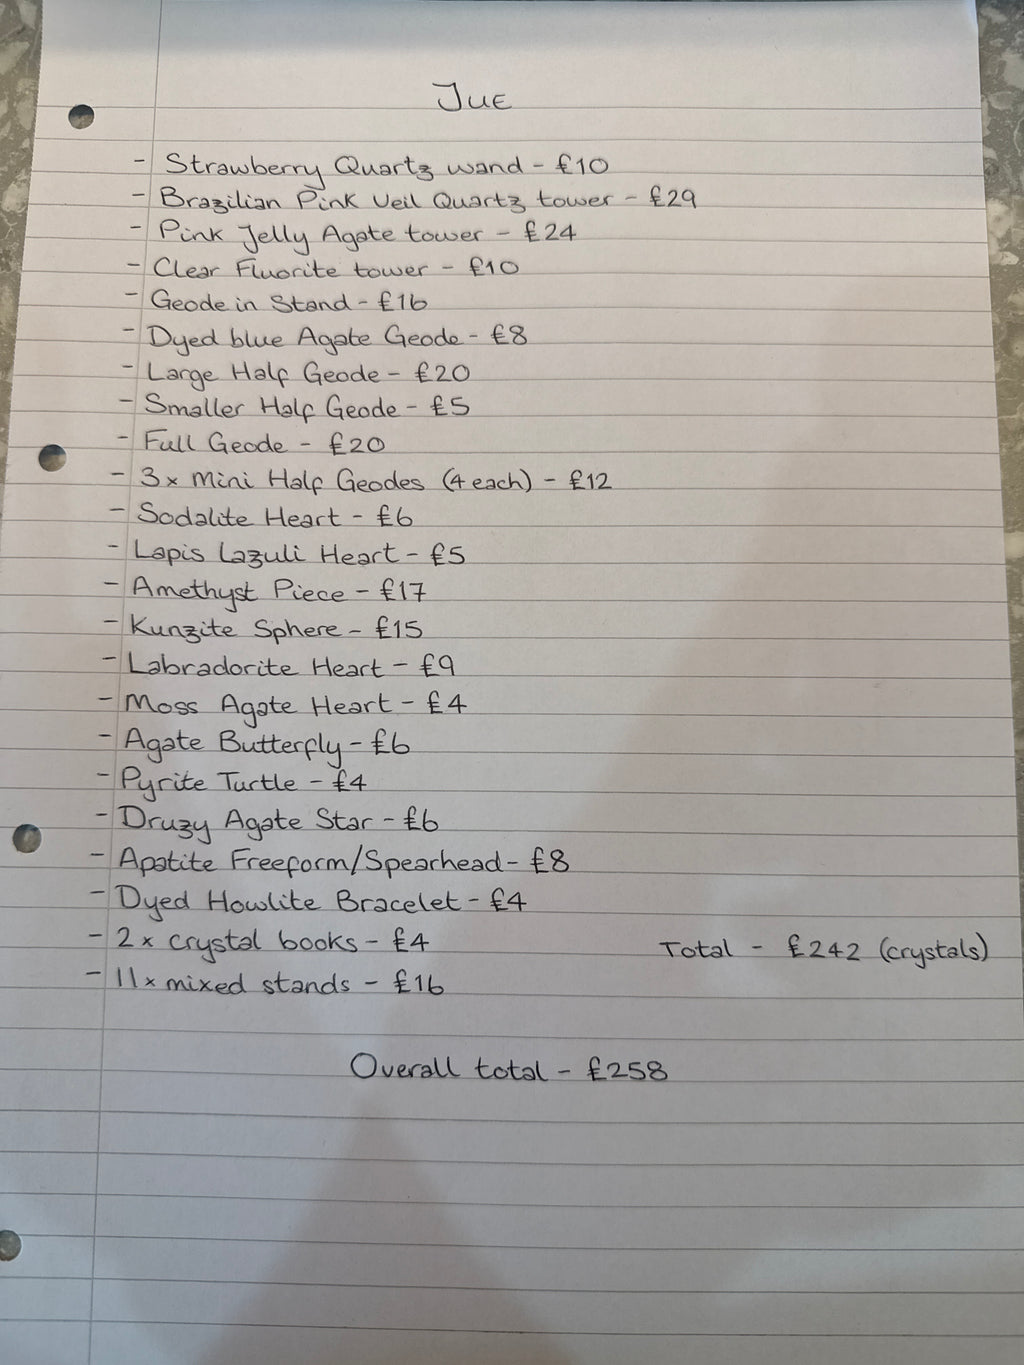 Jue
- Strawberry Quartz wand - £10
- Brazilian Pink Veil Quartz tower - £29
- Pink Jelly Agate tower - £24
- Clear Fluorite tower - £10
- Geode in Stand - £16
- Dyed blue Agate Geode - £8
- Large Half Geode - £20
- Smaller Half Geode - £5
- Full Geode - £20
- 3x Mini Half Geodes (4 each) - £12
- Sodalite Heart - £6
- Lapis Lazuli Heart - £5
- Amethyst Piece - £17
- Kunzite Sphere - £15
- Labradorite Heart - £9
- Moss Agate Heart - £4
- Agate Butterfly - £6
- Pyrite Turtle - £4
- Druzy Agate Star - £6
- Apatite Freeform/Spearhead - £8
- Dyed Howlite Bracelet - £4
- 2x crystal books - £4
Total - £242 (crystals)
- 11x mixed stands - £16
Overall total - £258